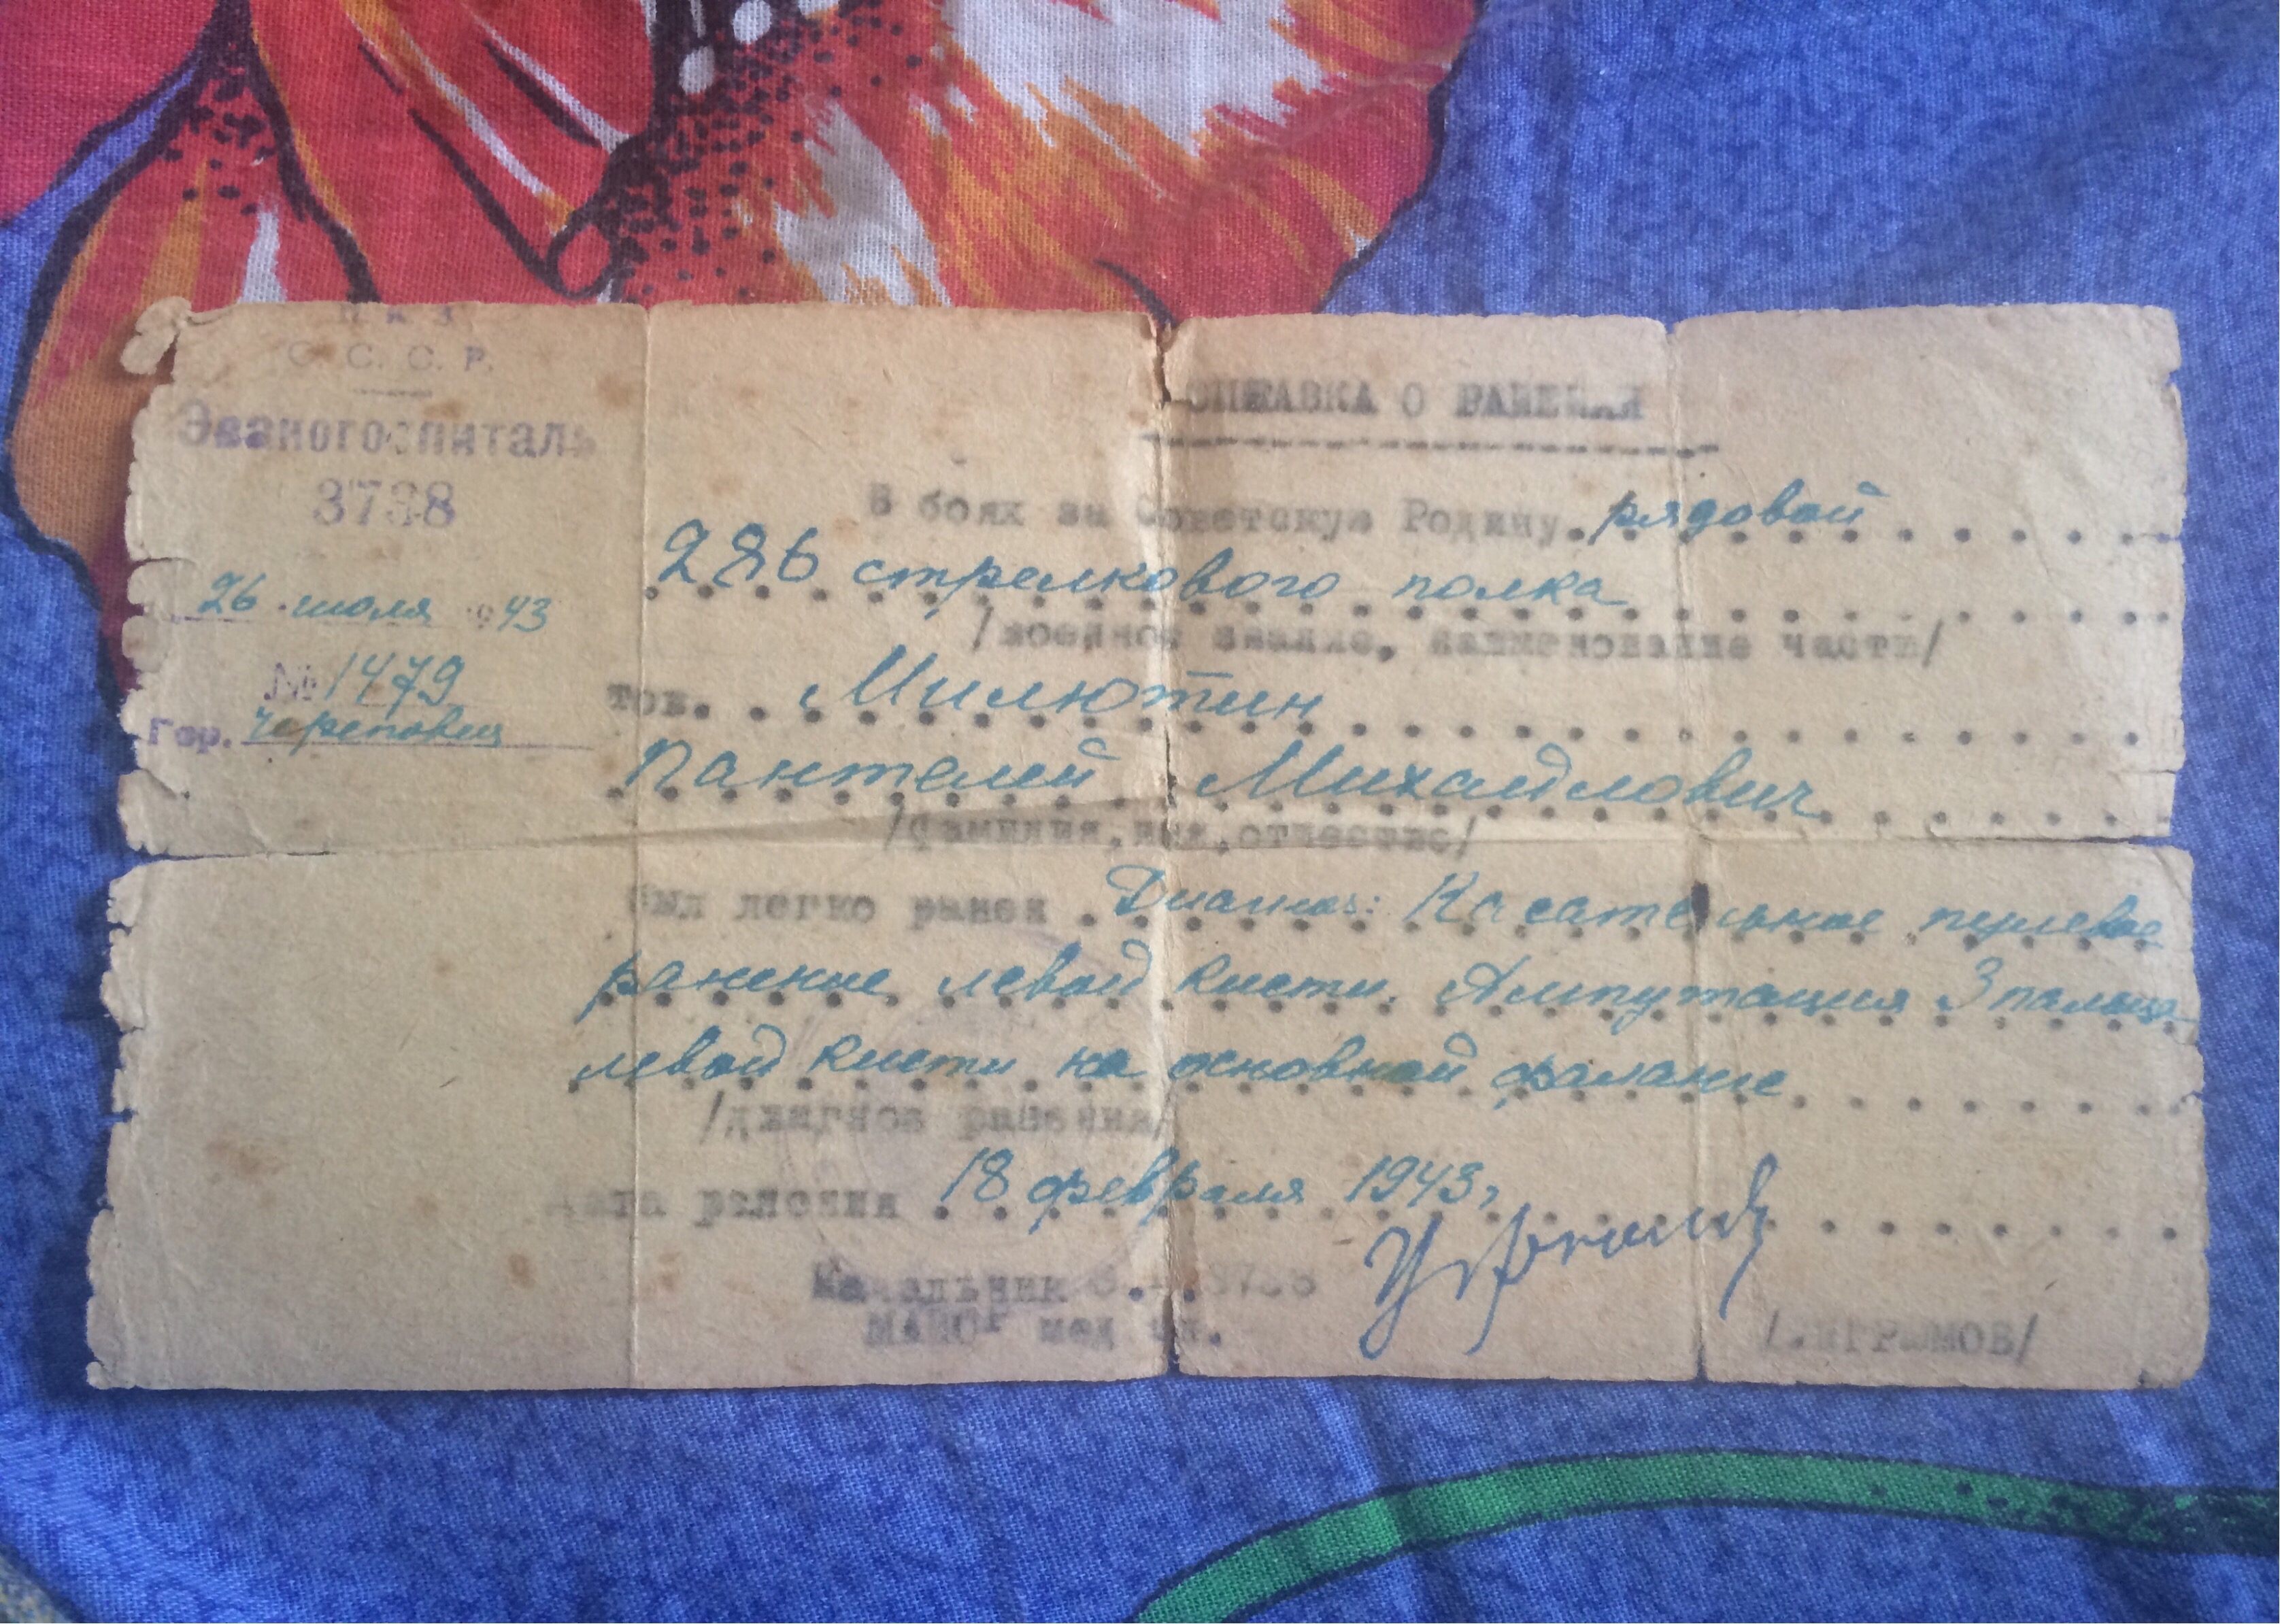 Н К З
С. С. С. Р.
Эвакогоспиталь
3738
26 июля 1943
№ 1479
Гор. Череповец
СПРАВКА О РАНЕНИИ
В боях за Советскую Родину. рядовой
286 стрелкового полка
/военное звание, наименование части/
тов. Милютин
Пантелей Михайлович
/фамилия, имя, отчество/
был легко ранен Диагноз: Касательное пулевое
ранение левой кисти. Ампутация 3 пальца
левой кисти на основной фаланге
/диагноз ранения/
Дата ранения 18 февраля 1943г
Начальник 3738
майор мед сл.